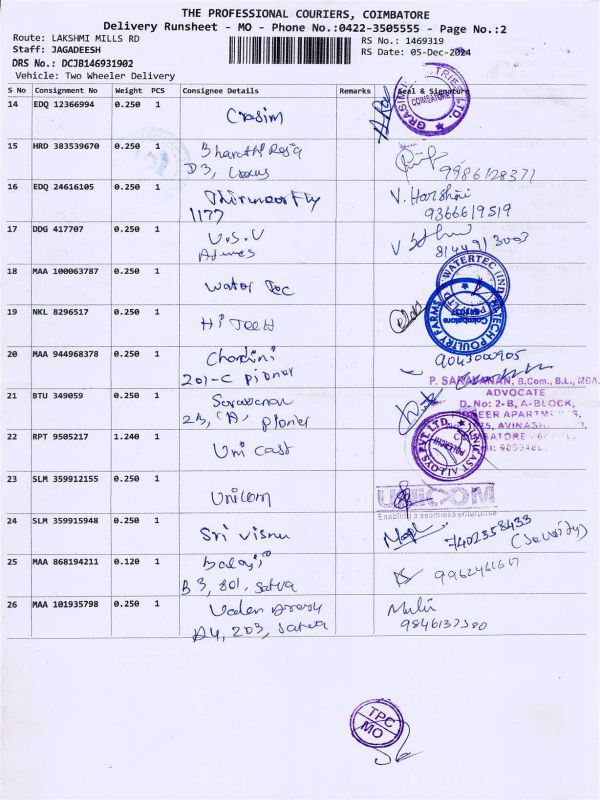 THE PROFESSIONAL COURIERS, COIMBATORE
Delivery Runsheet - MO - Phone No.:0422-3505555 - Page No.:2
Route: LAKSHMI MILLS RD
RS No.: 1469319
Staff: JAGADEESH
RS Date: 05-Dec-2024
DRS No.: DCJB146931902
Vehicle: Two Wheeler Delivery
S No Consignment No Weight PCS Consignee Details Remarks Seal & Signature
14 EDQ 12366994 0.250 1 Grasim
GRASIM INDUSTRIES LTD. COIMBATORE
15 HRD 383539670 0.250 1 Bharathi Raja
D3,
9986128371
16 EDQ 24616105 0.250 1
1177
V. Harshini
9366619519
17 DDG 417707 0.250 1 U.S.V
8144913003
18 MAA 100063787 0.250 1 Water Tec
WATERTEC
19 NKL 8296517 0.250 1 Hi Tech
HITECH POULTRY FARMS
Coimbatore
20 MAA 944968378 0.250 1 Chandini
201-C Pioner
9043000905
P. SARAVANAN, B.Com., B.L., MBA.
ADVOCATE
D. No: 2-B, A-BLOCK,
21 BTU 349059 0.250 1 Saravanan
2B, "A", Pionier
22 RPT 9505217 1.240 1 Uni Cast
UNICAST ALLOYS PVT LTD.
23 SLM 359912155 0.250 1 Unicom
UNICOM
Enabling a seamless enterprise
24 SLM 359915948 0.250 1 Sri Visnu
7402358433
(Security)
25 MAA 868194211 0.120 1 Balaji
B 3, 801, Satva
26 MAA 101935798 0.250 1
A4, 203, Satva
TPC
MO